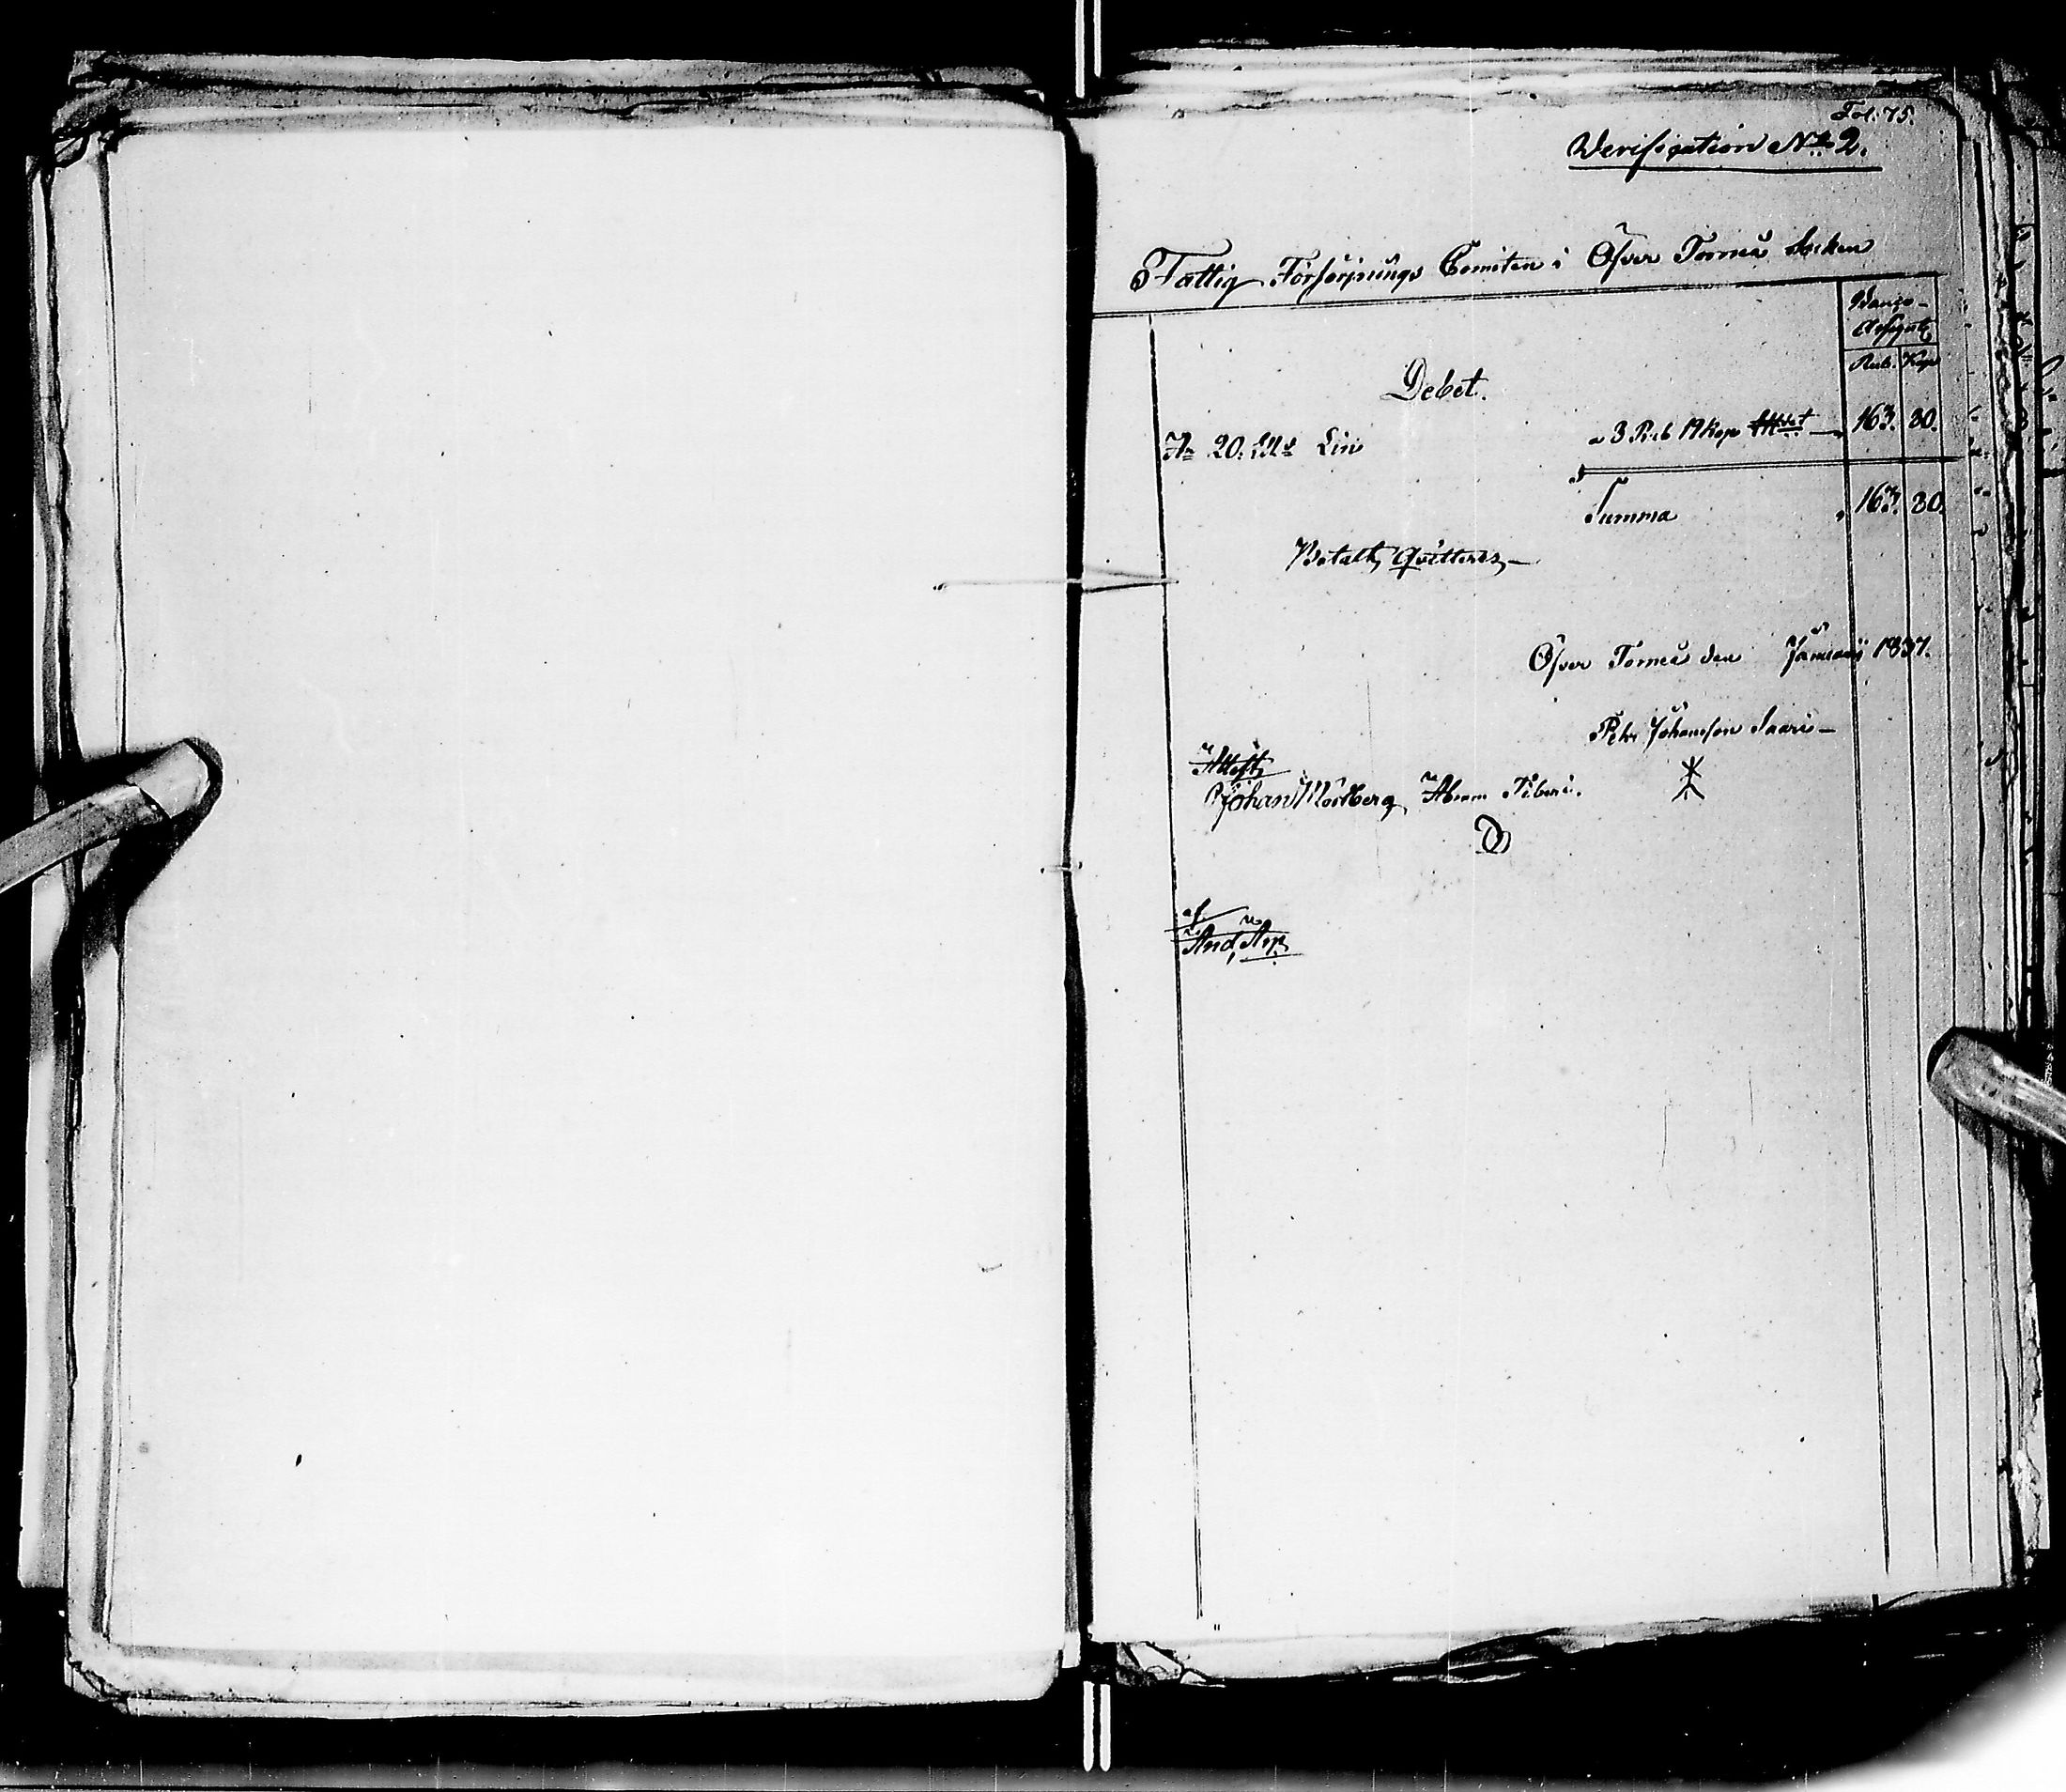 Fol. 75.
Verification No 2.
Fattig Försörjnings Comiten i Öfver Torneå Socken
Banco-
Assignat.
Rub. Kop
Debet.
20. Lin a 3 Rub 19 Kop 163. 30.
Summa 163. 30.
Betalt, Qvitteras,
Öfver Torneå den Januarij 1837.
Petr Johansson Saari
Attest,
Johan Abram
af
And, Arp.